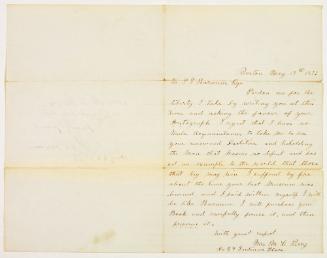 Boston May 19th 187
Mr P T Barnum Esqr
Pardon me for the
liberty I take by writing you at this
time and asking the favour of your
Autograph I regret that I have no
Male Acquaintance to take me to see
your renowned Exhibition and beholding
the Man that knows no defeat and has
set an example to the world that those
that try may win I suffered by fire
about the time your last Museum was
burned and I said within myself I will
be like Barnum I will purchase your
Book and carefully peruse it, and then
preserve it.
With great respect
Mrs M. C.
No 27